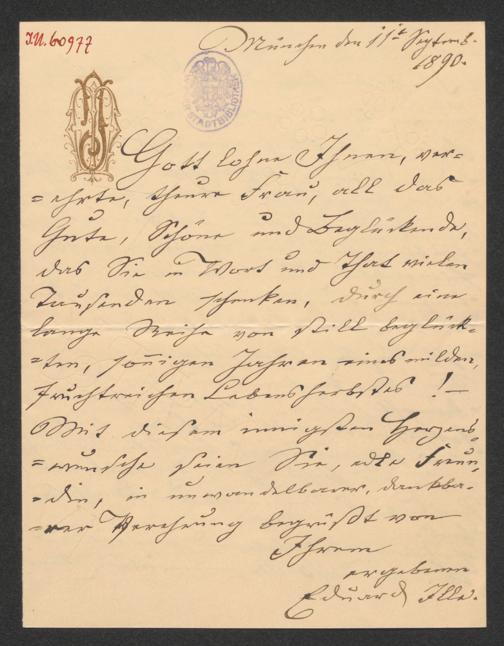 I.N. 60977
München den 11t Septemb.
1890.
STADTBIBLIOTHEK
Gott lohne Ihnen, ver=
=ehrte, theure Frau, all das
Gute, Schöne und Beglückende,
das Sie in Wort und That vielen
Tausenden schenken, durch eine
lange Reihe von still beglück=
=ten, sonnigen Jahren eines milden,
fruchtreichen Lebensherbstes! —
Mit diesem innigsten Herzens=
=wunsche seien Sie, edle Freun=
=din, in unwandelbarer, dankba=
=rer Verehrung begrüßt von
Ihrem
ergebenen
Eduard Ille.